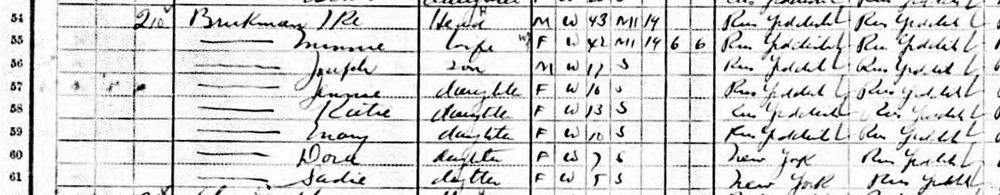 54 210 Brukman Ike Head M W 43 M1 19 Rus Yiddish Rus Yiddish
55 —— Minnie wife F W 42 M1 19 6 6 Rus Yiddish Rus Yiddish
56 —— Joseph son M W 17 S Rus Yiddish Rus Yiddish
57 —— Jennie daughter F W 16 S Rus Yiddish Rus Yiddish
58 —— Katie daughter F W 13 S Rus Yiddish Rus Yiddish
59 —— Mary daughter F W 10 S Rus Yiddish Rus Yiddish
60 —— Dora daughter F W 7 S New York Rus Yiddish
61 —— Sadie daughter F W 5 S New York Rus Yiddish